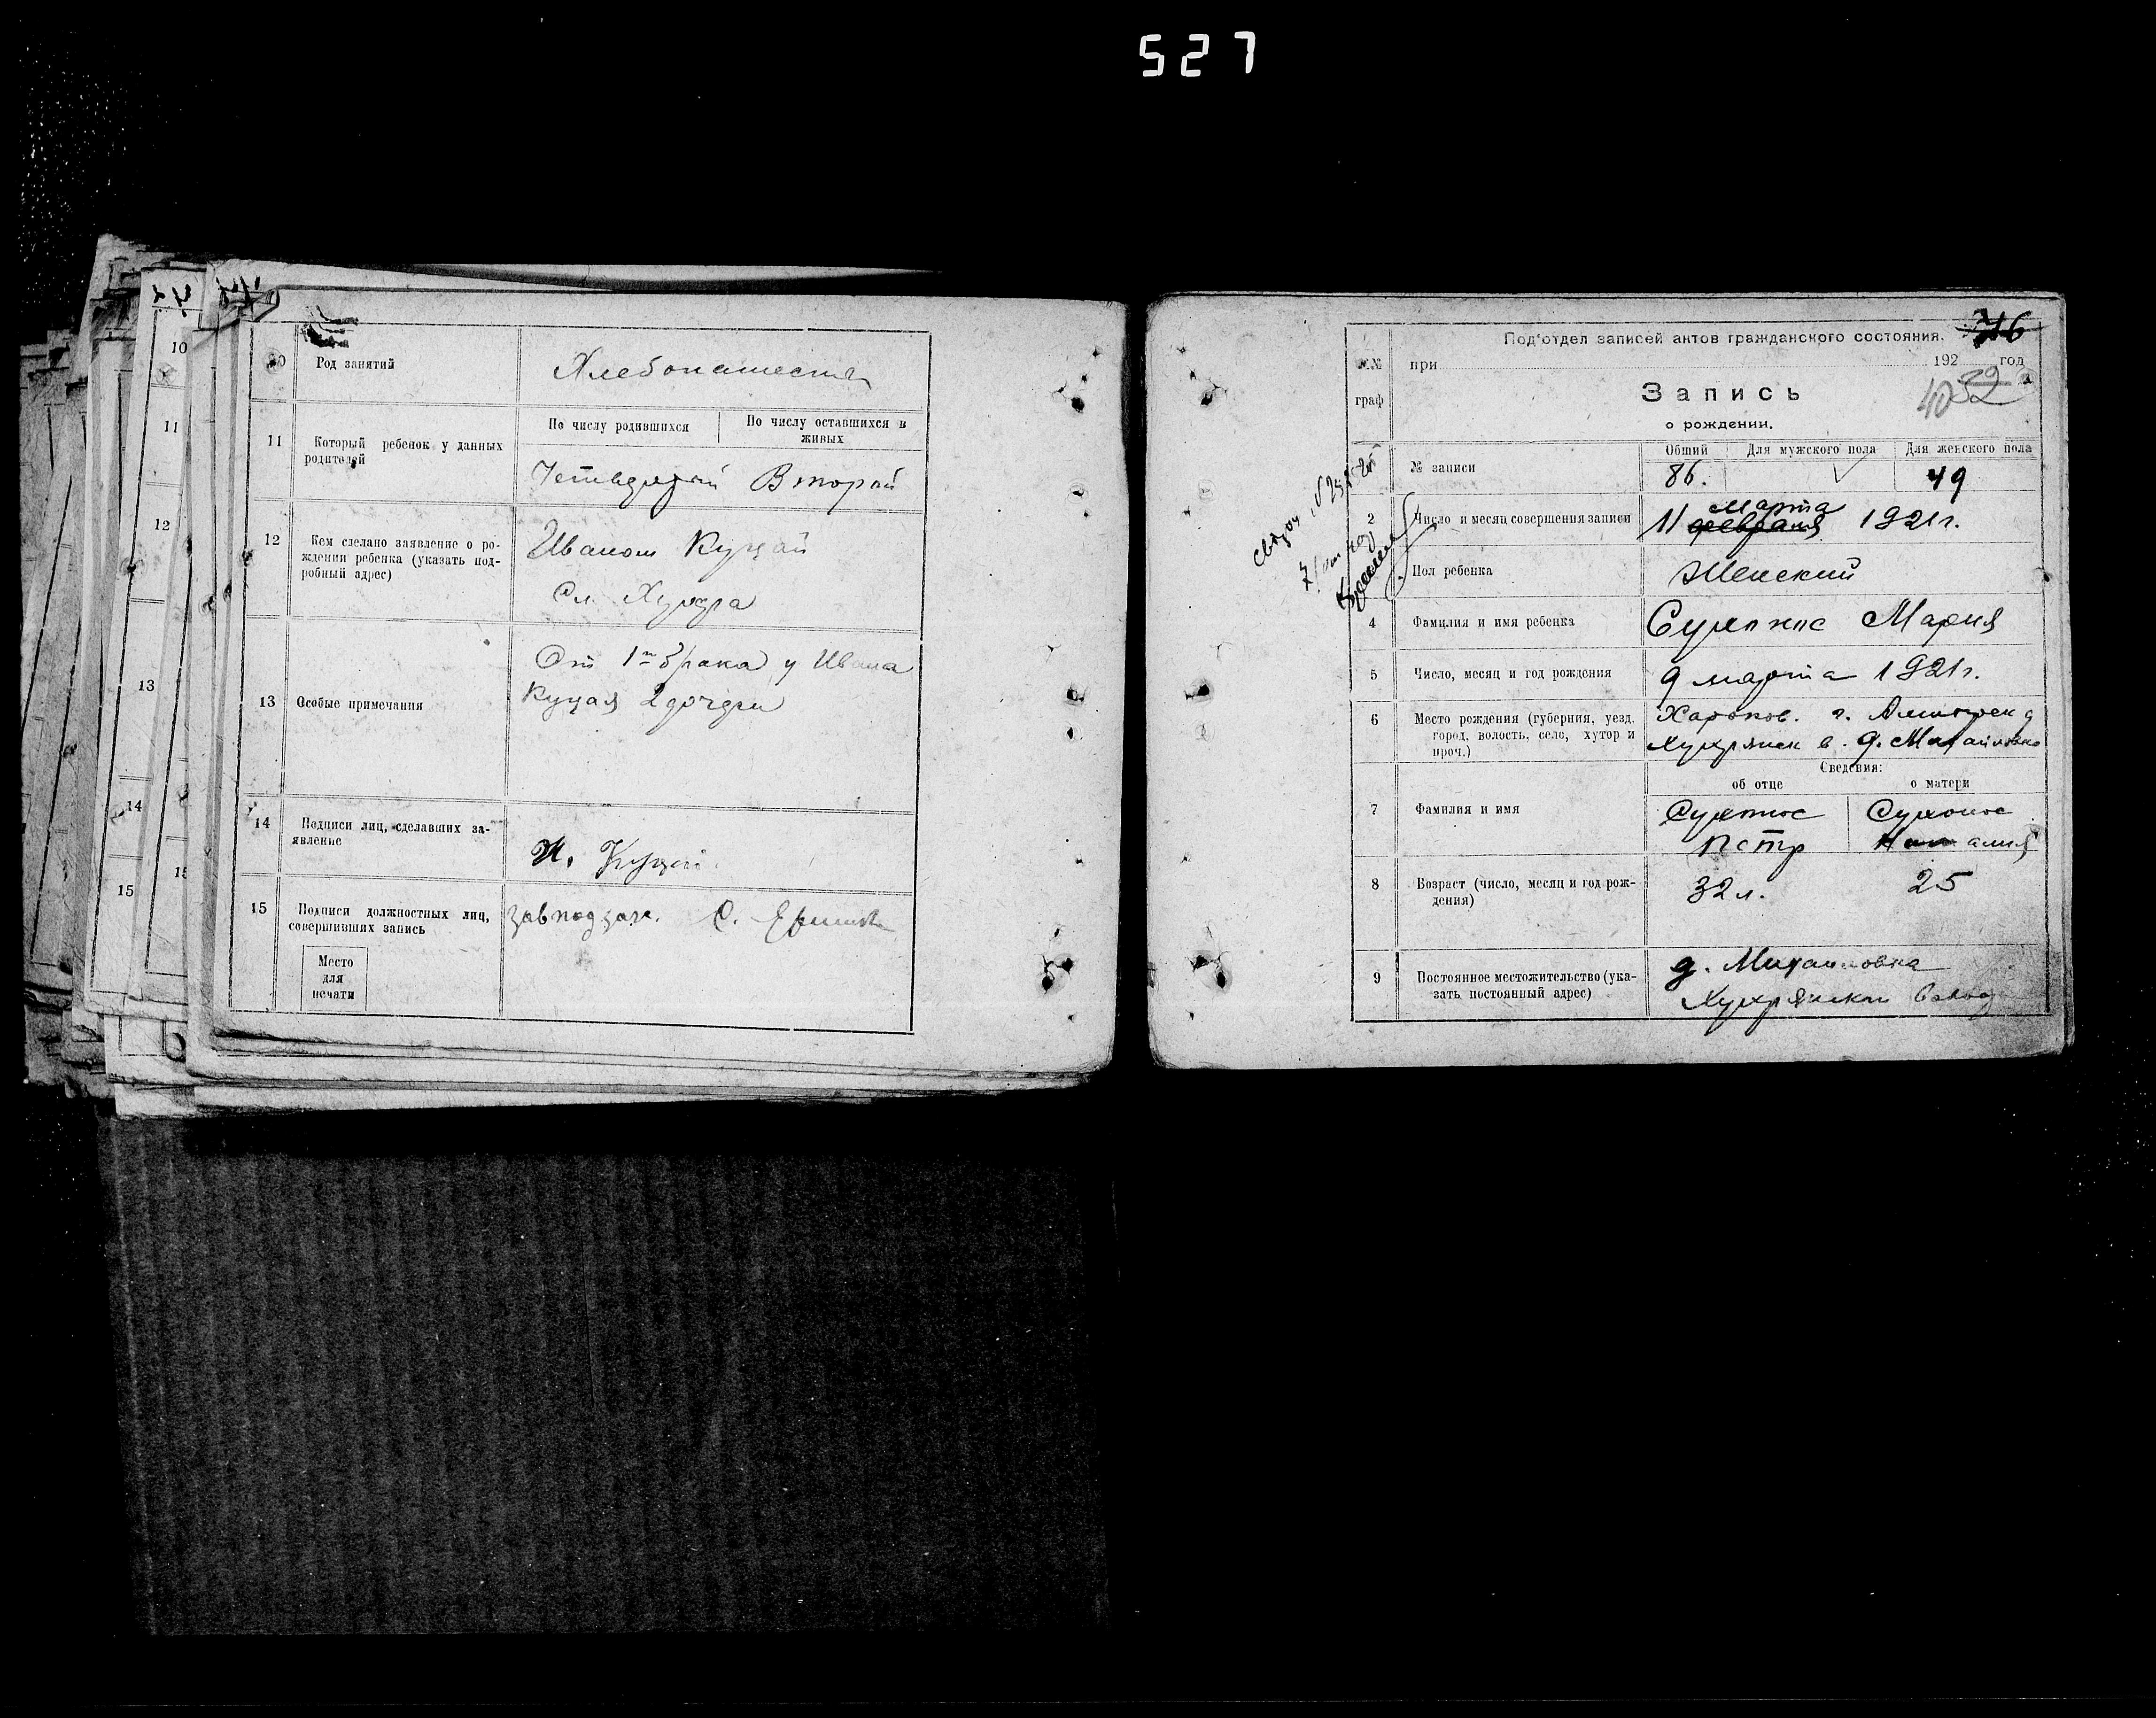 527
10
11
12
13
14
15
Род занятий
Хлебопашеств
11
Который ребенок у данных родителей
По числу родившихся
По числу оставшихся в живых
Четвертый
Второй
12
Кем сделано заявление о ро-
ждении ребенка (указать под-
робный адрес)
Иваном Куцай
Сл.
13
Особые примечания
От 1го брака у Ивана
Куцая 2 дочери
14
Подписи лиц, сделавших за-
явление
И. Куцай
15
Подписи должностных лиц,
совершивших запись
завподзаг. С.
Место
для
печати
Под'отдел записей актов гражданского состояния.
№№
граф
при 192 год
Запись
о рождении.
40 39
№ записи
Общий
Для мужского пола
Для женского пола
86.
49
2
Число и месяц совершения записи
марта
11 февраля 1921 г.
Пол ребенка
Женский
4
Фамилия и имя ребенка
Мария
5
Число, месяц и год рождения
9 марта 1921 г.
6
Место рождения (губерния, уезд,
город, волость, село, хутор и
проч.)
Харьков. г.
в. д. Михайловка
Сведения:
об отце
о матери
7
Фамилия и имя
Петр
8
Возраст (число, месяц и год рож-
дения)
32 л.
25
9
Постоянное местожительство (ука-
зать постоянный адрес)
д. Михайловка
Хухрянской волод